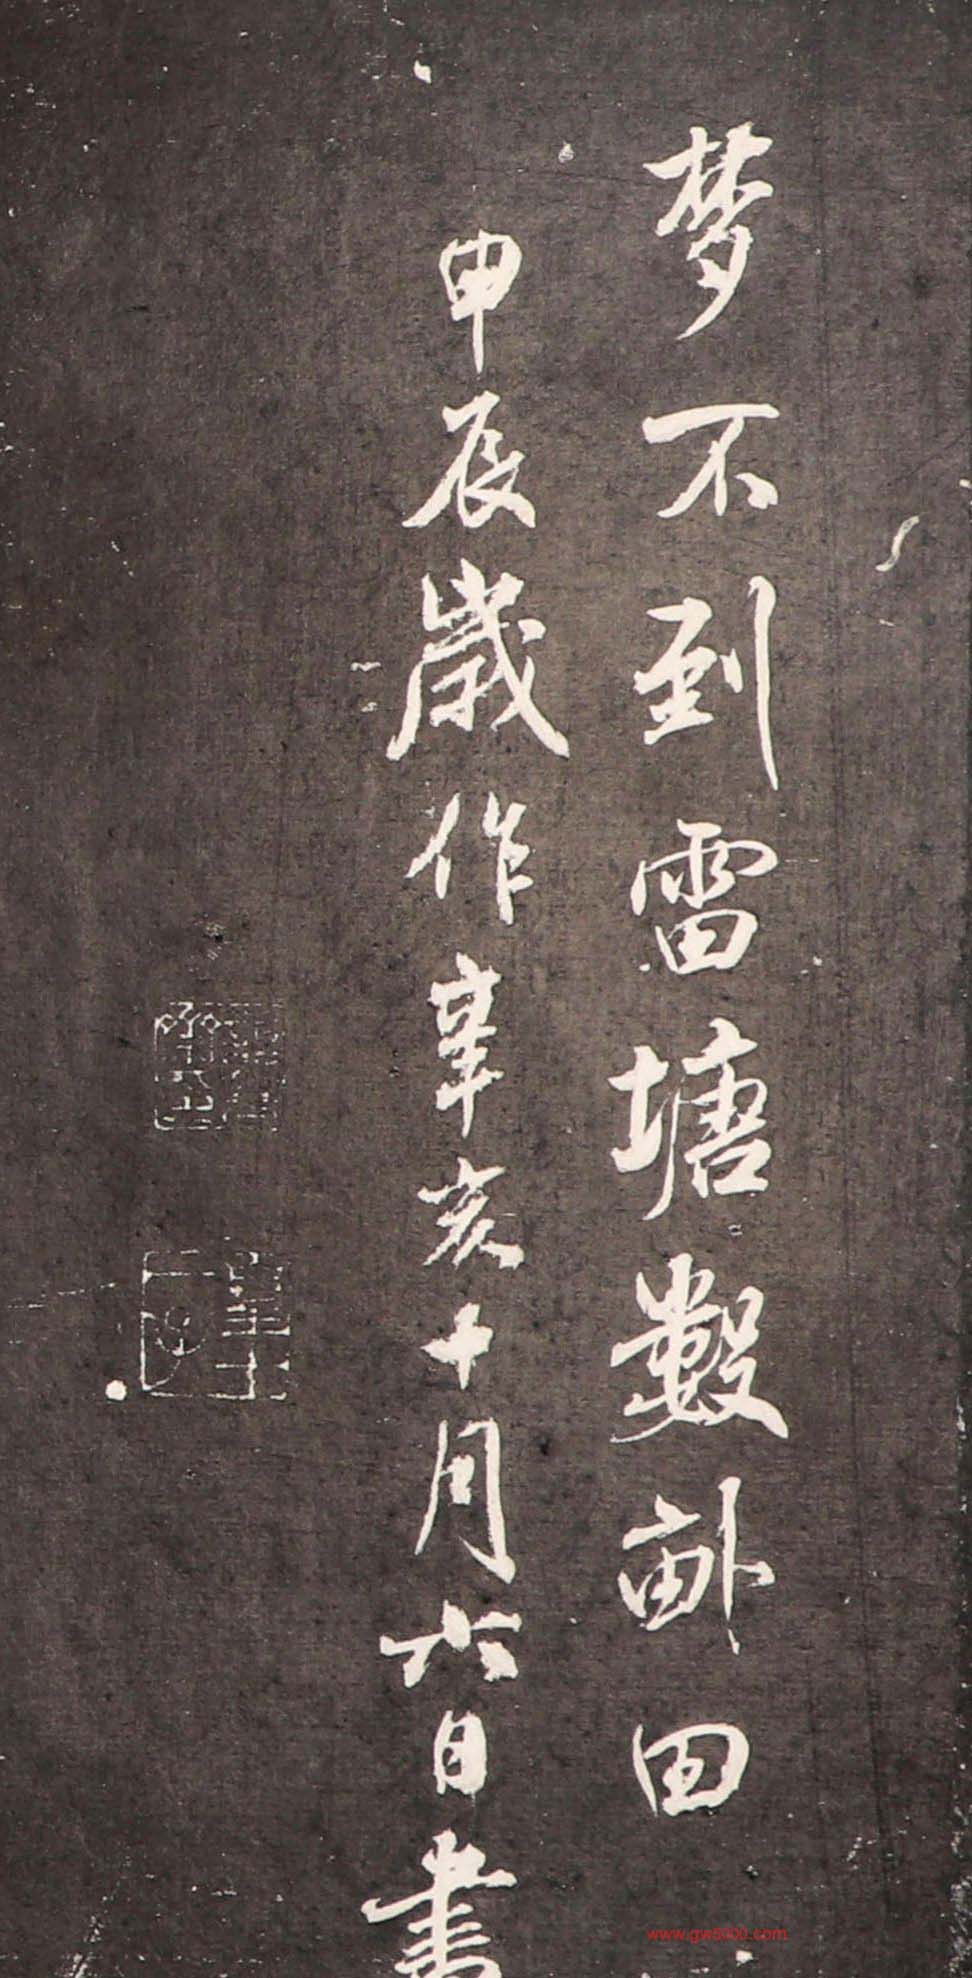 梦不到雷塘數畝田
甲辰歲作辛亥十月六日書
www.gw5000.com